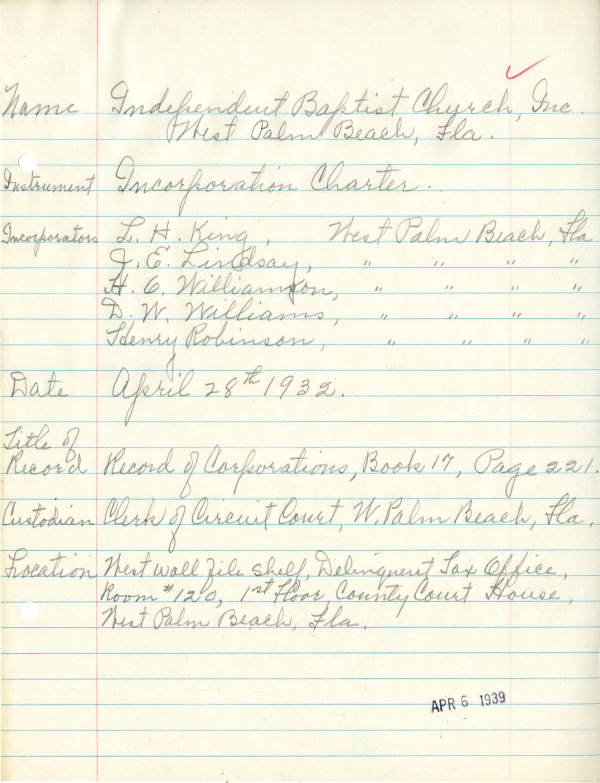 Name Independent Baptist Church, Inc.
West Palm Beach, Fla.
Instrument Incorporation Charter.
Incorporators L. H. King, West Palm Beach, Fla
J. E. Lindsay, " " " "
H. C. Williamson, " " " "
D. W. Williams, " " " "
Henry Robinson, " " " "
Date April 28th 1932.
Title of
Record Record of Corporations, Book 17, Page 221.
Custodian Clerk of Circuit Court, W. Palm Beach, Fla,
Location West wall file shelf, Delinquent Tax Office,
Room #120, 1st Floor County Court House,
West Palm Beach, Fla.
APR 6 1939